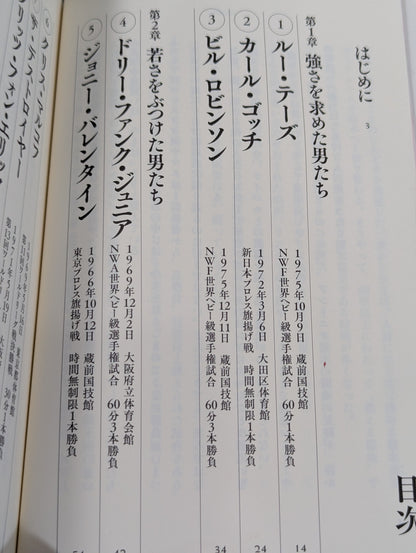 目次
はじめに 3
第1章 強さを求めた男たち
1 ルー・テーズ
1975年10月9日 蔵前国技館
NWF世界ヘビー級選手権試合 60分3本勝負
14
2 カール・ゴッチ
1972年3月6日 大田区体育館
新日本プロレス旗揚げ戦 時間無制限1本勝負
24
3 ビル・ロビンソン
1975年12月11日 蔵前国技館
NWF世界ヘビー級選手権試合 60分3本勝負
34
第2章 若さをぶつけた男たち
4 ドリー・ファンク・ジュニア
1969年12月2日 大阪府立体育会館
NWA世界ヘビー級選手権試合 60分3本勝負
5 ジョニー・バレンタイン
1966年10月12日 蔵前国技館
東京プロレス旗揚げ戦 時間無制限1本勝負
6
デストロイヤー
1971年5月19日
フリッツ・フォン・エリック